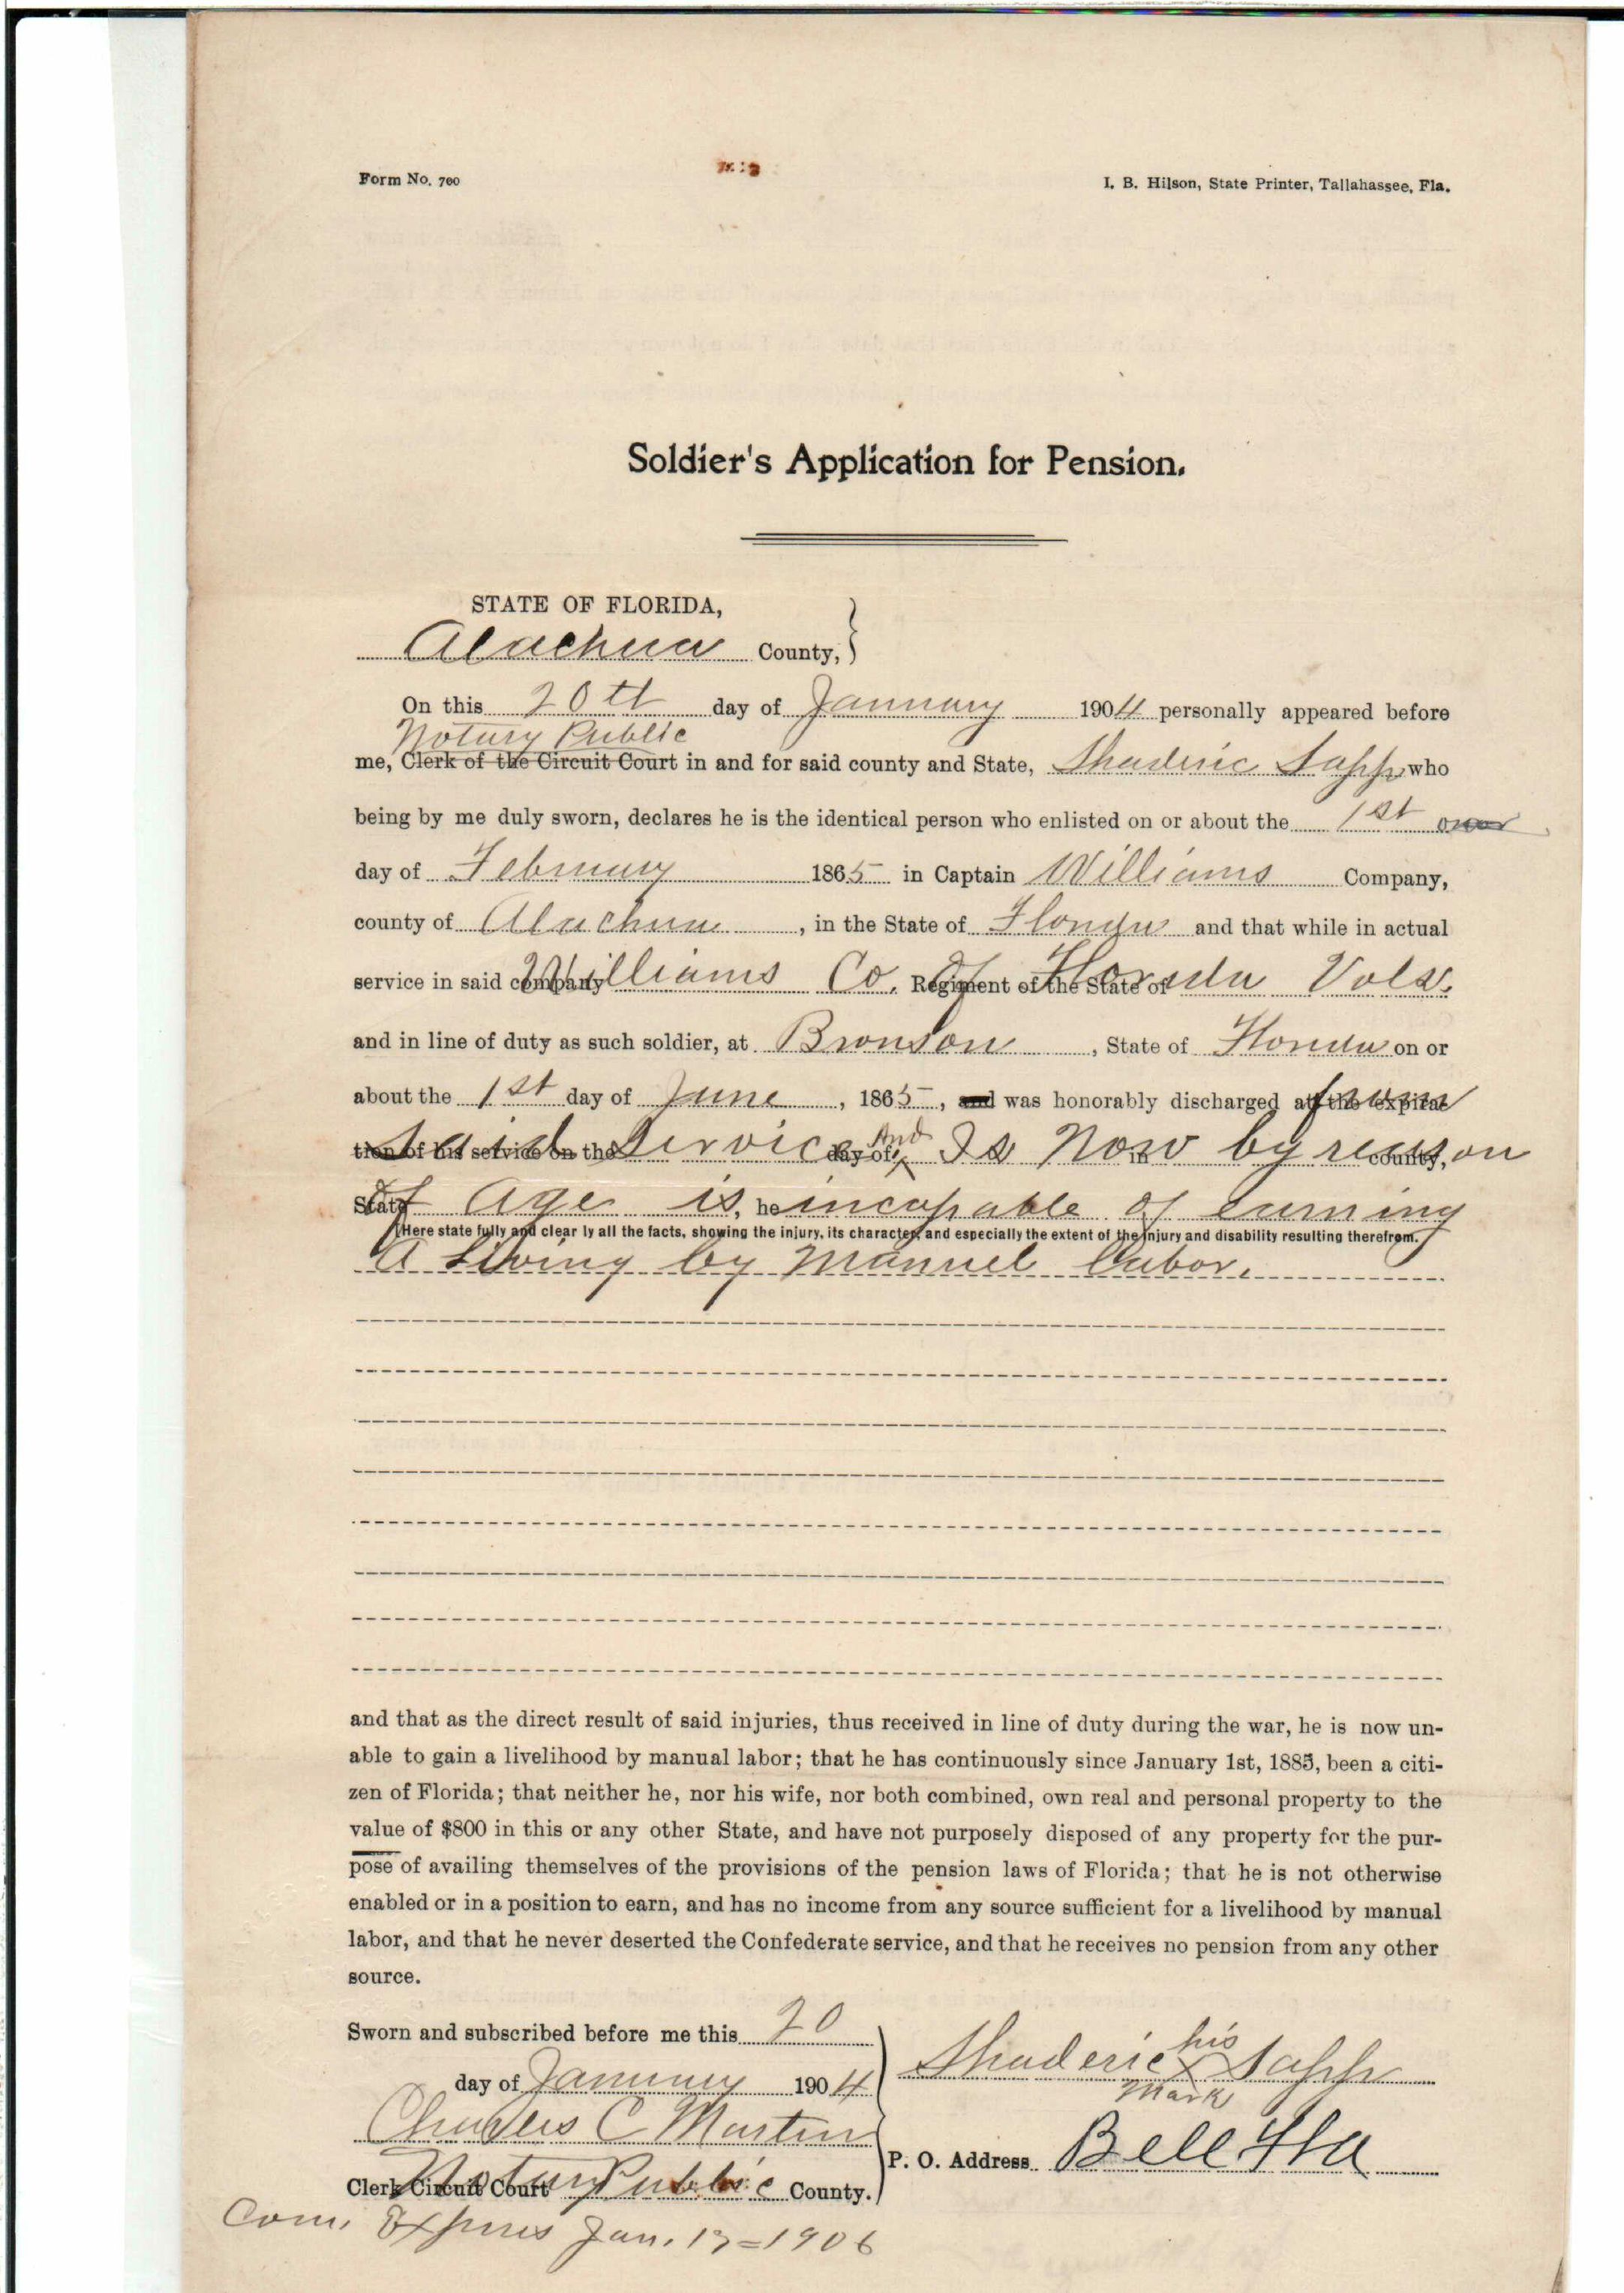 Form No. 700
I. B. Hilson, State Printer, Tallahassee, Fla.
Soldier's Application for Pension.
STATE OF FLORIDA,
Alachua County,
On this 20th day of January 1904 personally appeared before
Notary Public
me, Clerk of the Circuit Court in and for said county and State, Shaderic Sapp who
being by me duly sworn, declares he is the identical person who enlisted on or about the 1st
day of February 1865 in Captain Williams Company,
county of Alachua, in the State of Florida and that while in actual
service in said company Williams Co. of Regiment of the State of Florida Vols.
and in line of duty as such soldier, at Bronson, State of Florida on or
about the 1st day of June, 1865, and was honorably discharged at the expira- from
tion of his service on the said service day of And Is Now in by reason county,
State of Age is, he incapable of earning
(Here state fully and clearly all the facts, showing the injury, its character, and especially the extent of the injury and disability resulting therefrom.
A Living by Manuel Labor.
and that as the direct result of said injuries, thus received in line of duty during the war, he is now un-
able to gain a livelihood by manual labor; that he has continuously since January 1st, 1885, been a citi-
zen of Florida; that neither he, nor his wife, nor both combined, own real and personal property to the
value of $800 in this or any other State, and have not purposely disposed of any property for the pur-
pose of availing themselves of the provisions of the pension laws of Florida; that he is not otherwise
enabled or in a position to earn, and has no income from any source sufficient for a livelihood by manual
labor, and that he never deserted the Confederate service, and that he receives no pension from any other
source.
Sworn and subscribed before me this 20
day of January 1904
Shaderic his X mark Sapp
Charles C Martin
P. O. Address Bell Fla
Clerk Circuit Court Notary Public County.
Com. Expires Jan. 17=1906